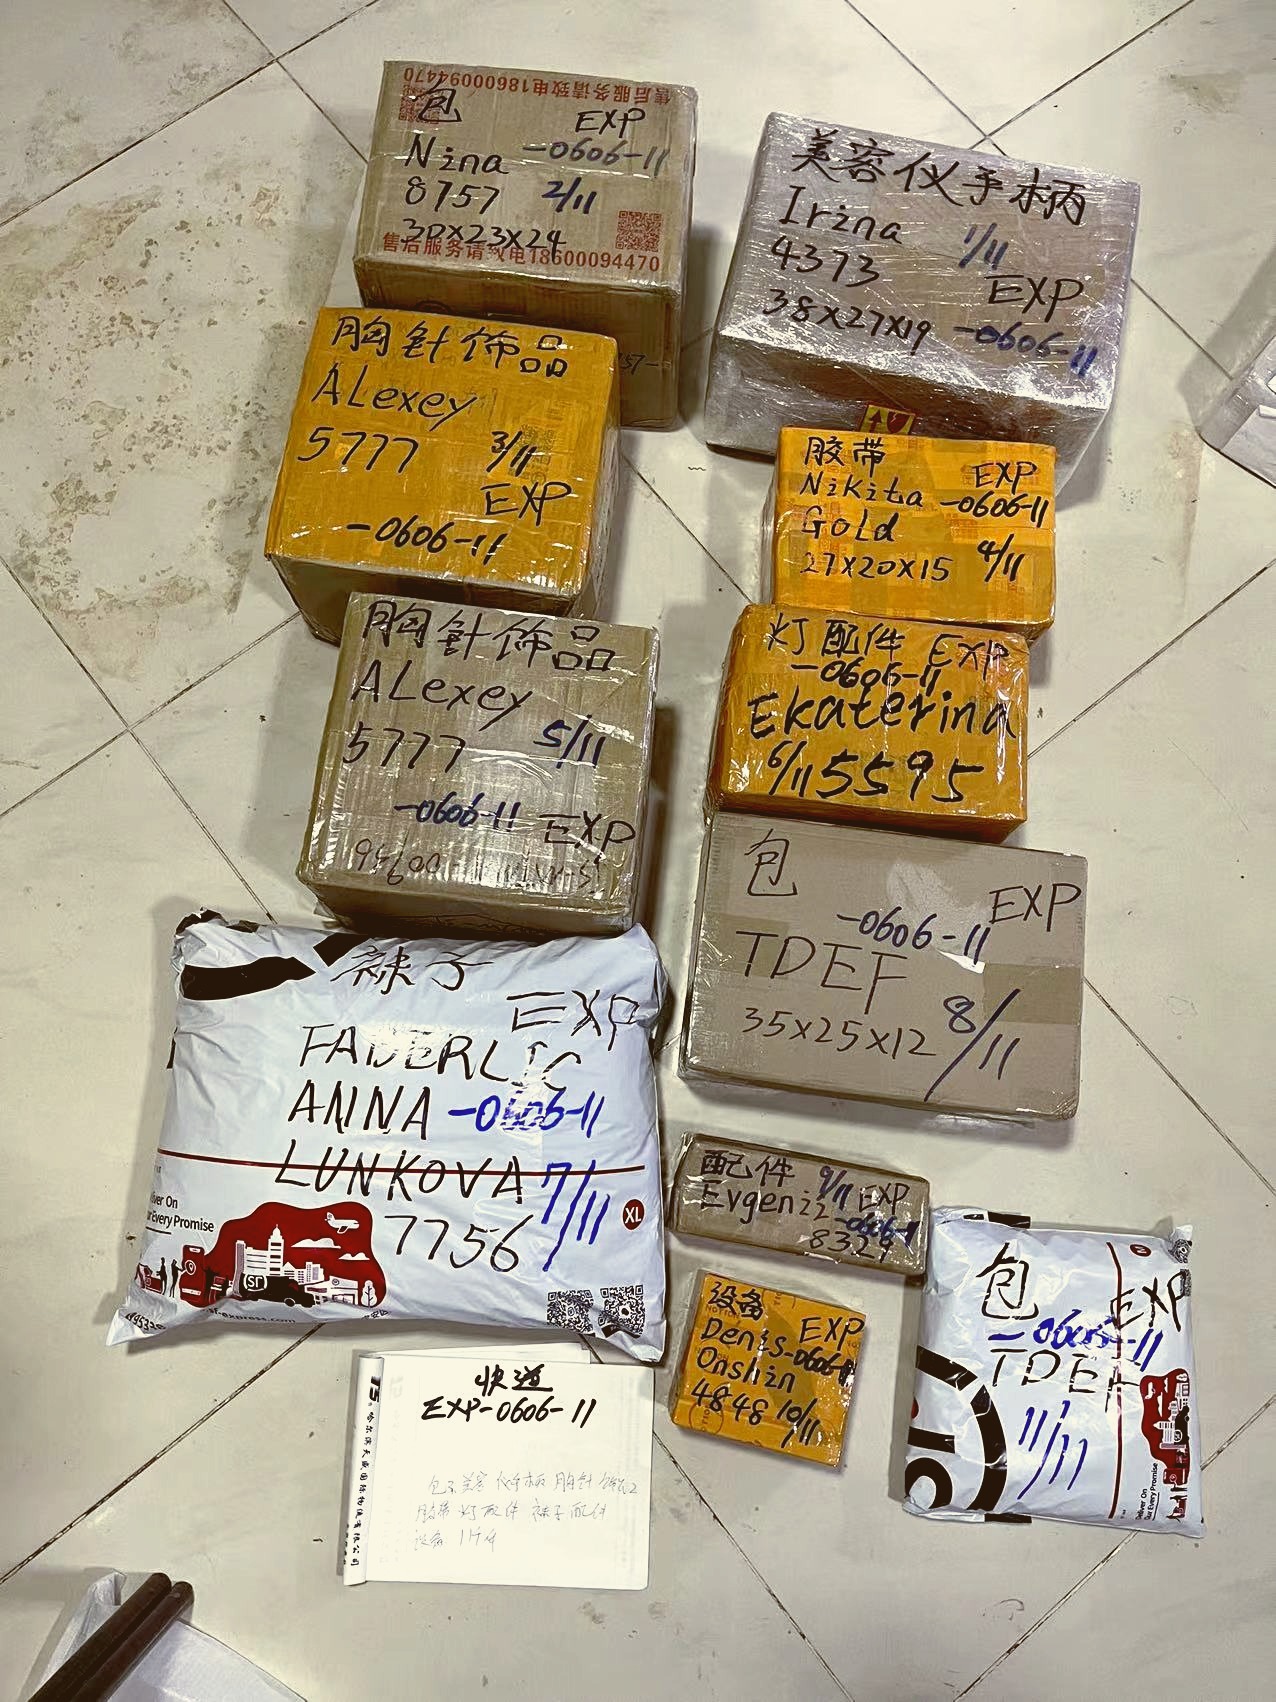 售后服务请致电18600094470
包
EXP
Nina -0606-11
8757 2/11
30X23X24
售后服务请致电18600094470
美容仪手柄
Irina 1/11
4373
EXP
38X27X19 -0606-11
胸针饰品
ALexey
5777 3/11
EXP
-0606-11
胶带
EXP
Nikita -0606-11
GoLd
27X20X15 4/11
胸针饰品
ALexey
5777 5/11
-0606-11 EXP
灯配件 EXP
-0606-11
Ekaterina
6/11 5595
包
EXP
-0606-11
TDEF
35X25X12 8/11
袜子
EXP
FABERLIC
ANNA -0606-11
LUNKOVA 7/11
7756
XL
Every Promise
SF
sf-express.com
配件 9/11 EXP
Evgenii -0606-11
8329
设备
Denis EXP
-0606-11
Onshin
4848 10/11
包
EXP
-0606-11
TDEF
11/11
Deliver On
Your Every Promise
快递
EXP-0606-11
哈尔滨天威国际物流有限公司
胶带 灯配件 袜子 配件
设备 11件